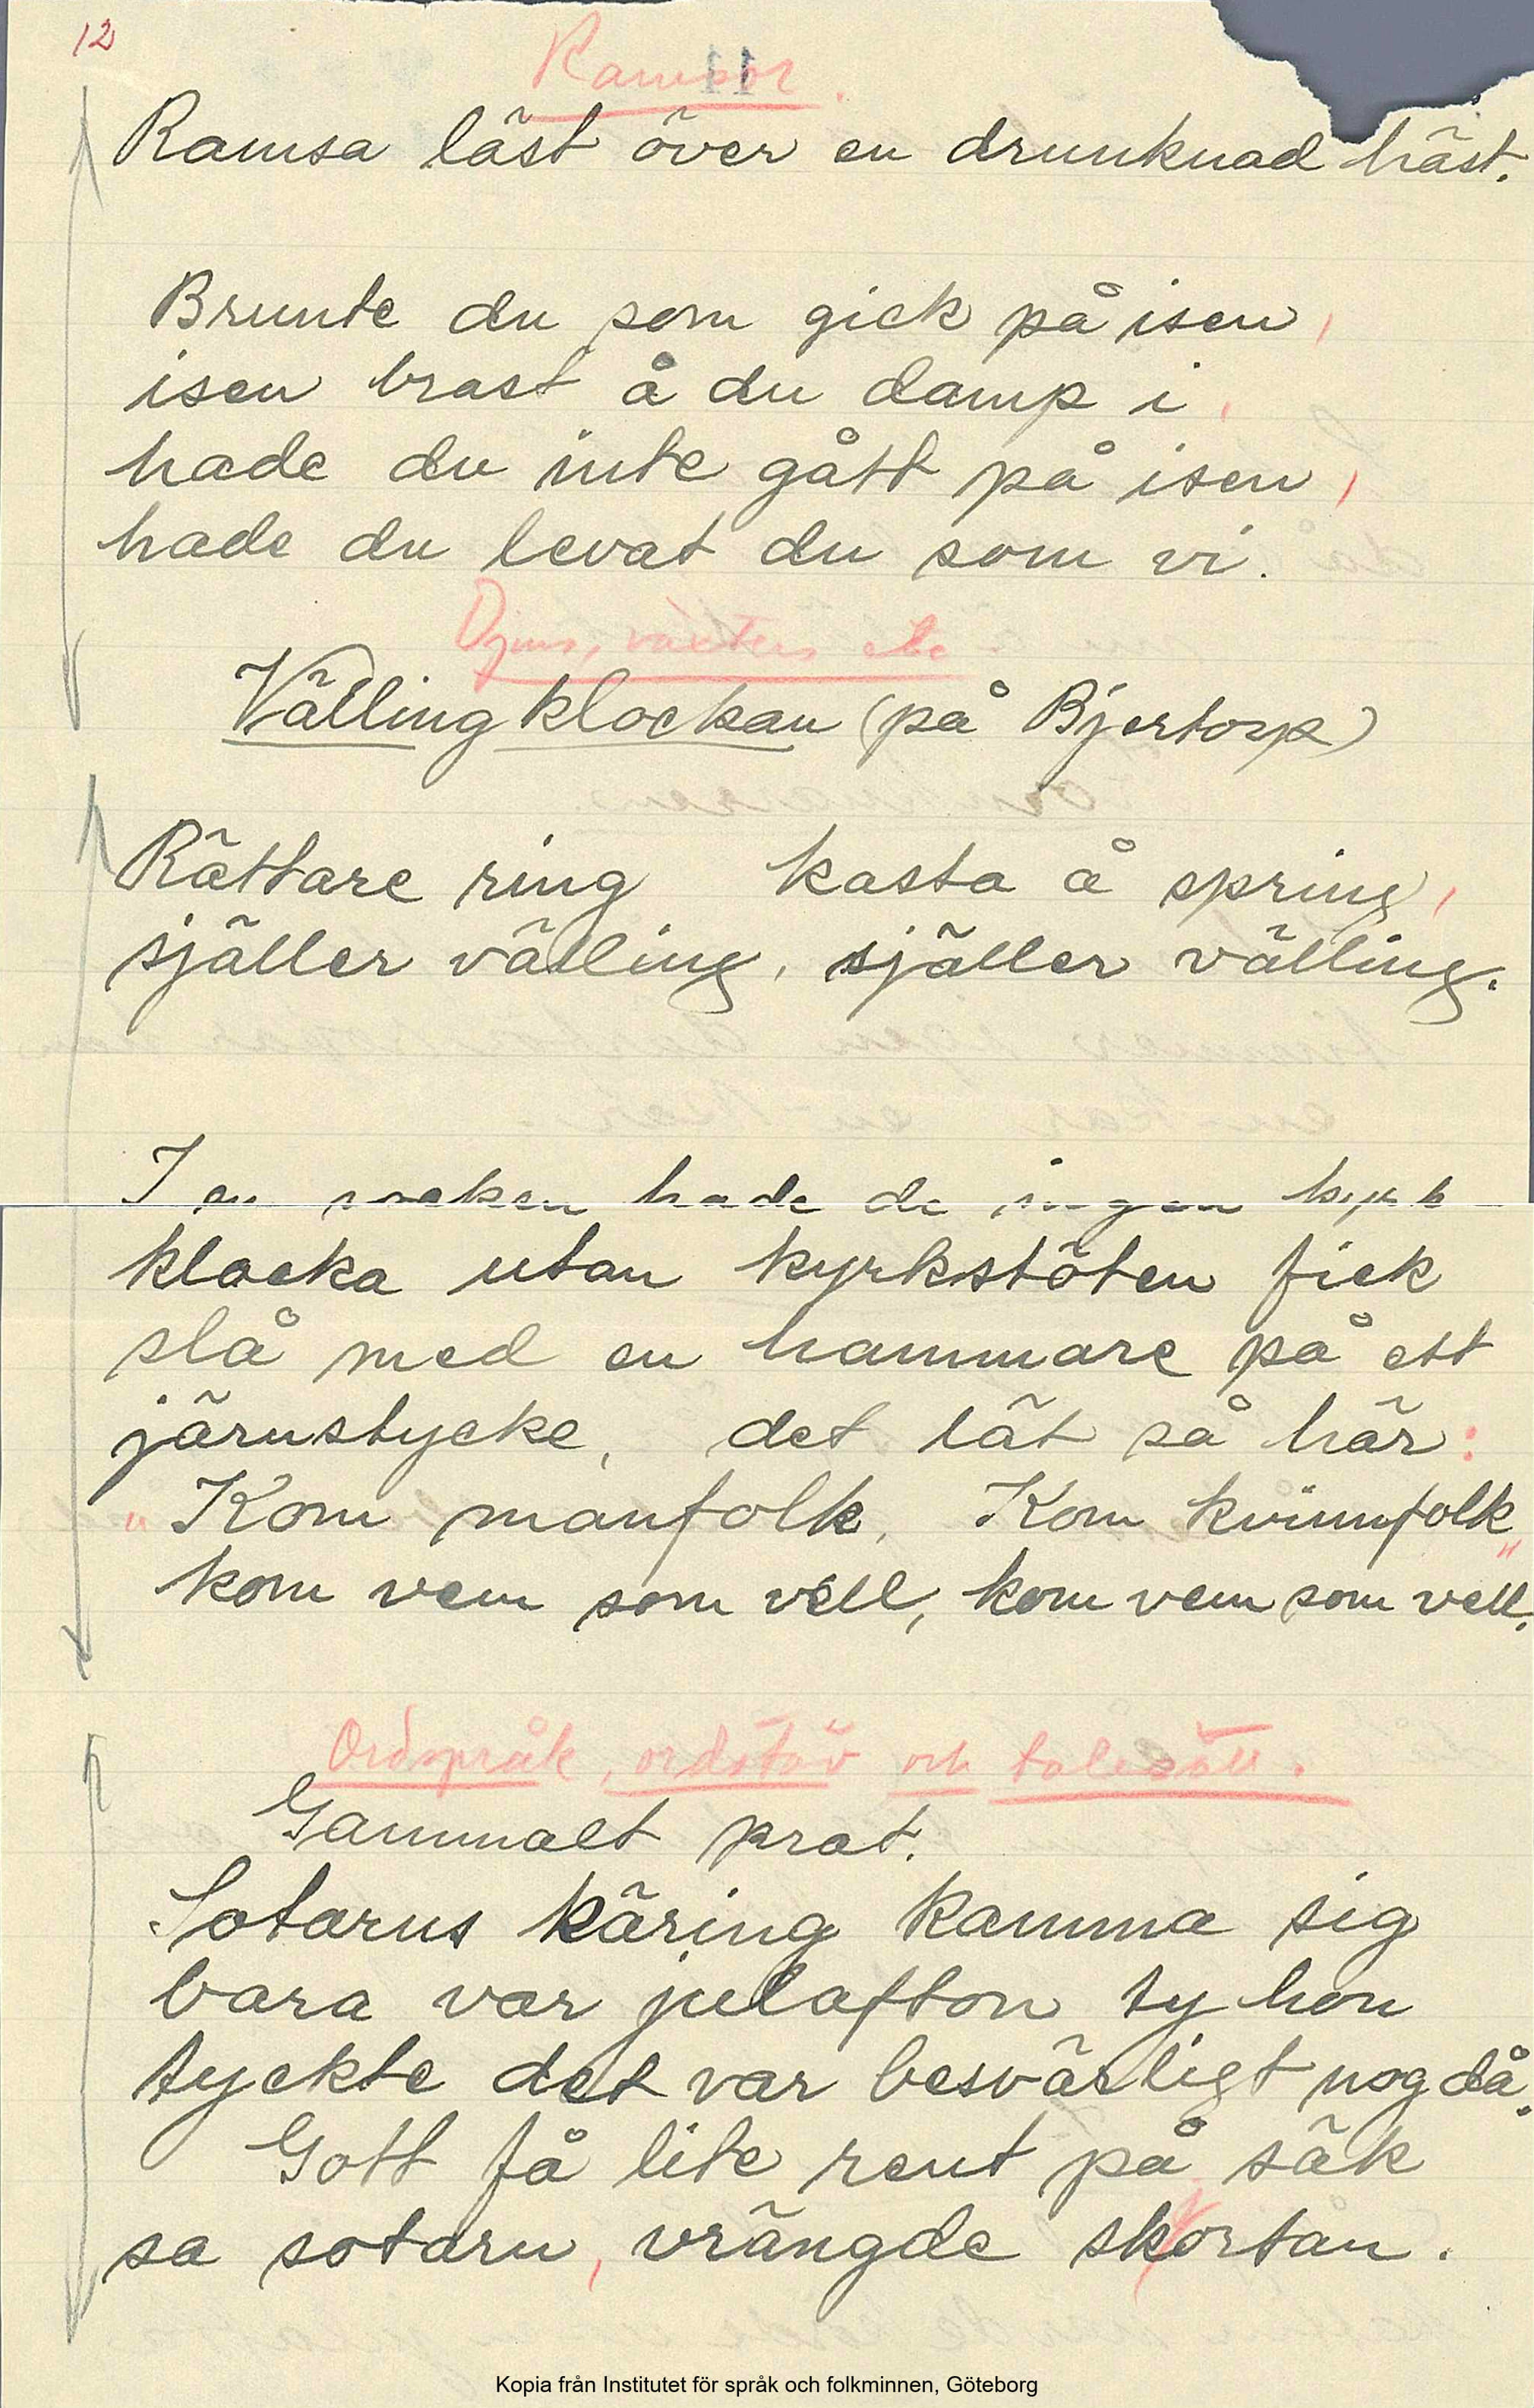 12
Ramsor.
11
Ramsa läst över en drunknad häst.
Brunte du som gick på isen,
isen brast å du damp i,
hade du inte gått på isen,
hade du levat du som vi.
Djurs, växters etc.
Vällingklockan (på Bjertorp)
Rättare ring kasta å spring,
själler välling, själler välling.
I en socken hade de ingen kyrk-
klocka utan kyrkstöten fick
slå med en hammare på ett
järnstycke, det lät så här:
"Kom manfolk, Kom kvinnfolk
kom vem som vell, kom vem som vell."
Ordspråk, ordstäv och talesätt.
Gammalt prat.
Sotarns käring kamma sig
bara var julafton ty hon
tyckte det var besvärligt nog då.
Gott få lite rent på säk
sa sotarn, vrängde skortan.
Kopia från Institutet för språk och folkminnen, Göteborg